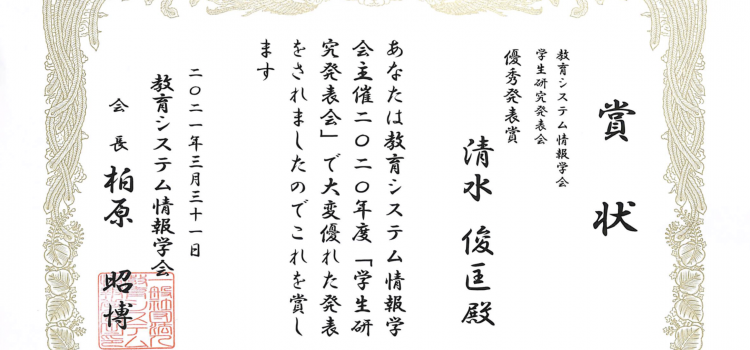 賞状
教育システム情報学会
学生研究発表会
優秀発表賞
清水 俊匡殿
あなたは教育システム情報学
会主催二〇二〇年度「学生研
究発表会」で大変優れた発表
をされましたのでこれを賞し
ます
二〇二一年三月三十一日
教育システム情報学会
会長 柏原 昭博